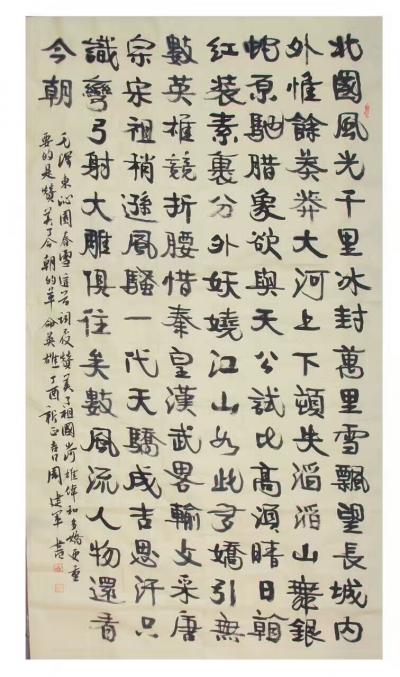 北國風光千里冰封萬里雪飄望長城内
外惟餘莽莽大河上下頓失滔滔山舞銀
蛇原馳腊象欲與天公試比高須晴日
紅裝素裹分外妖嬈江山如此多嬌引無
數英雄競折腰惜秦皇漢武畧輸文采唐
宗宋祖稍遜風騷一代天驕成吉思汗只
識彎弓射大雕俱往矣數風流人物還看
今朝
毛澤東沁園春雪這首詞不仅贊美了祖國山河雄偉和多嬌更重
要的是贊美了今朝的革命英雄丁酉周建軍書